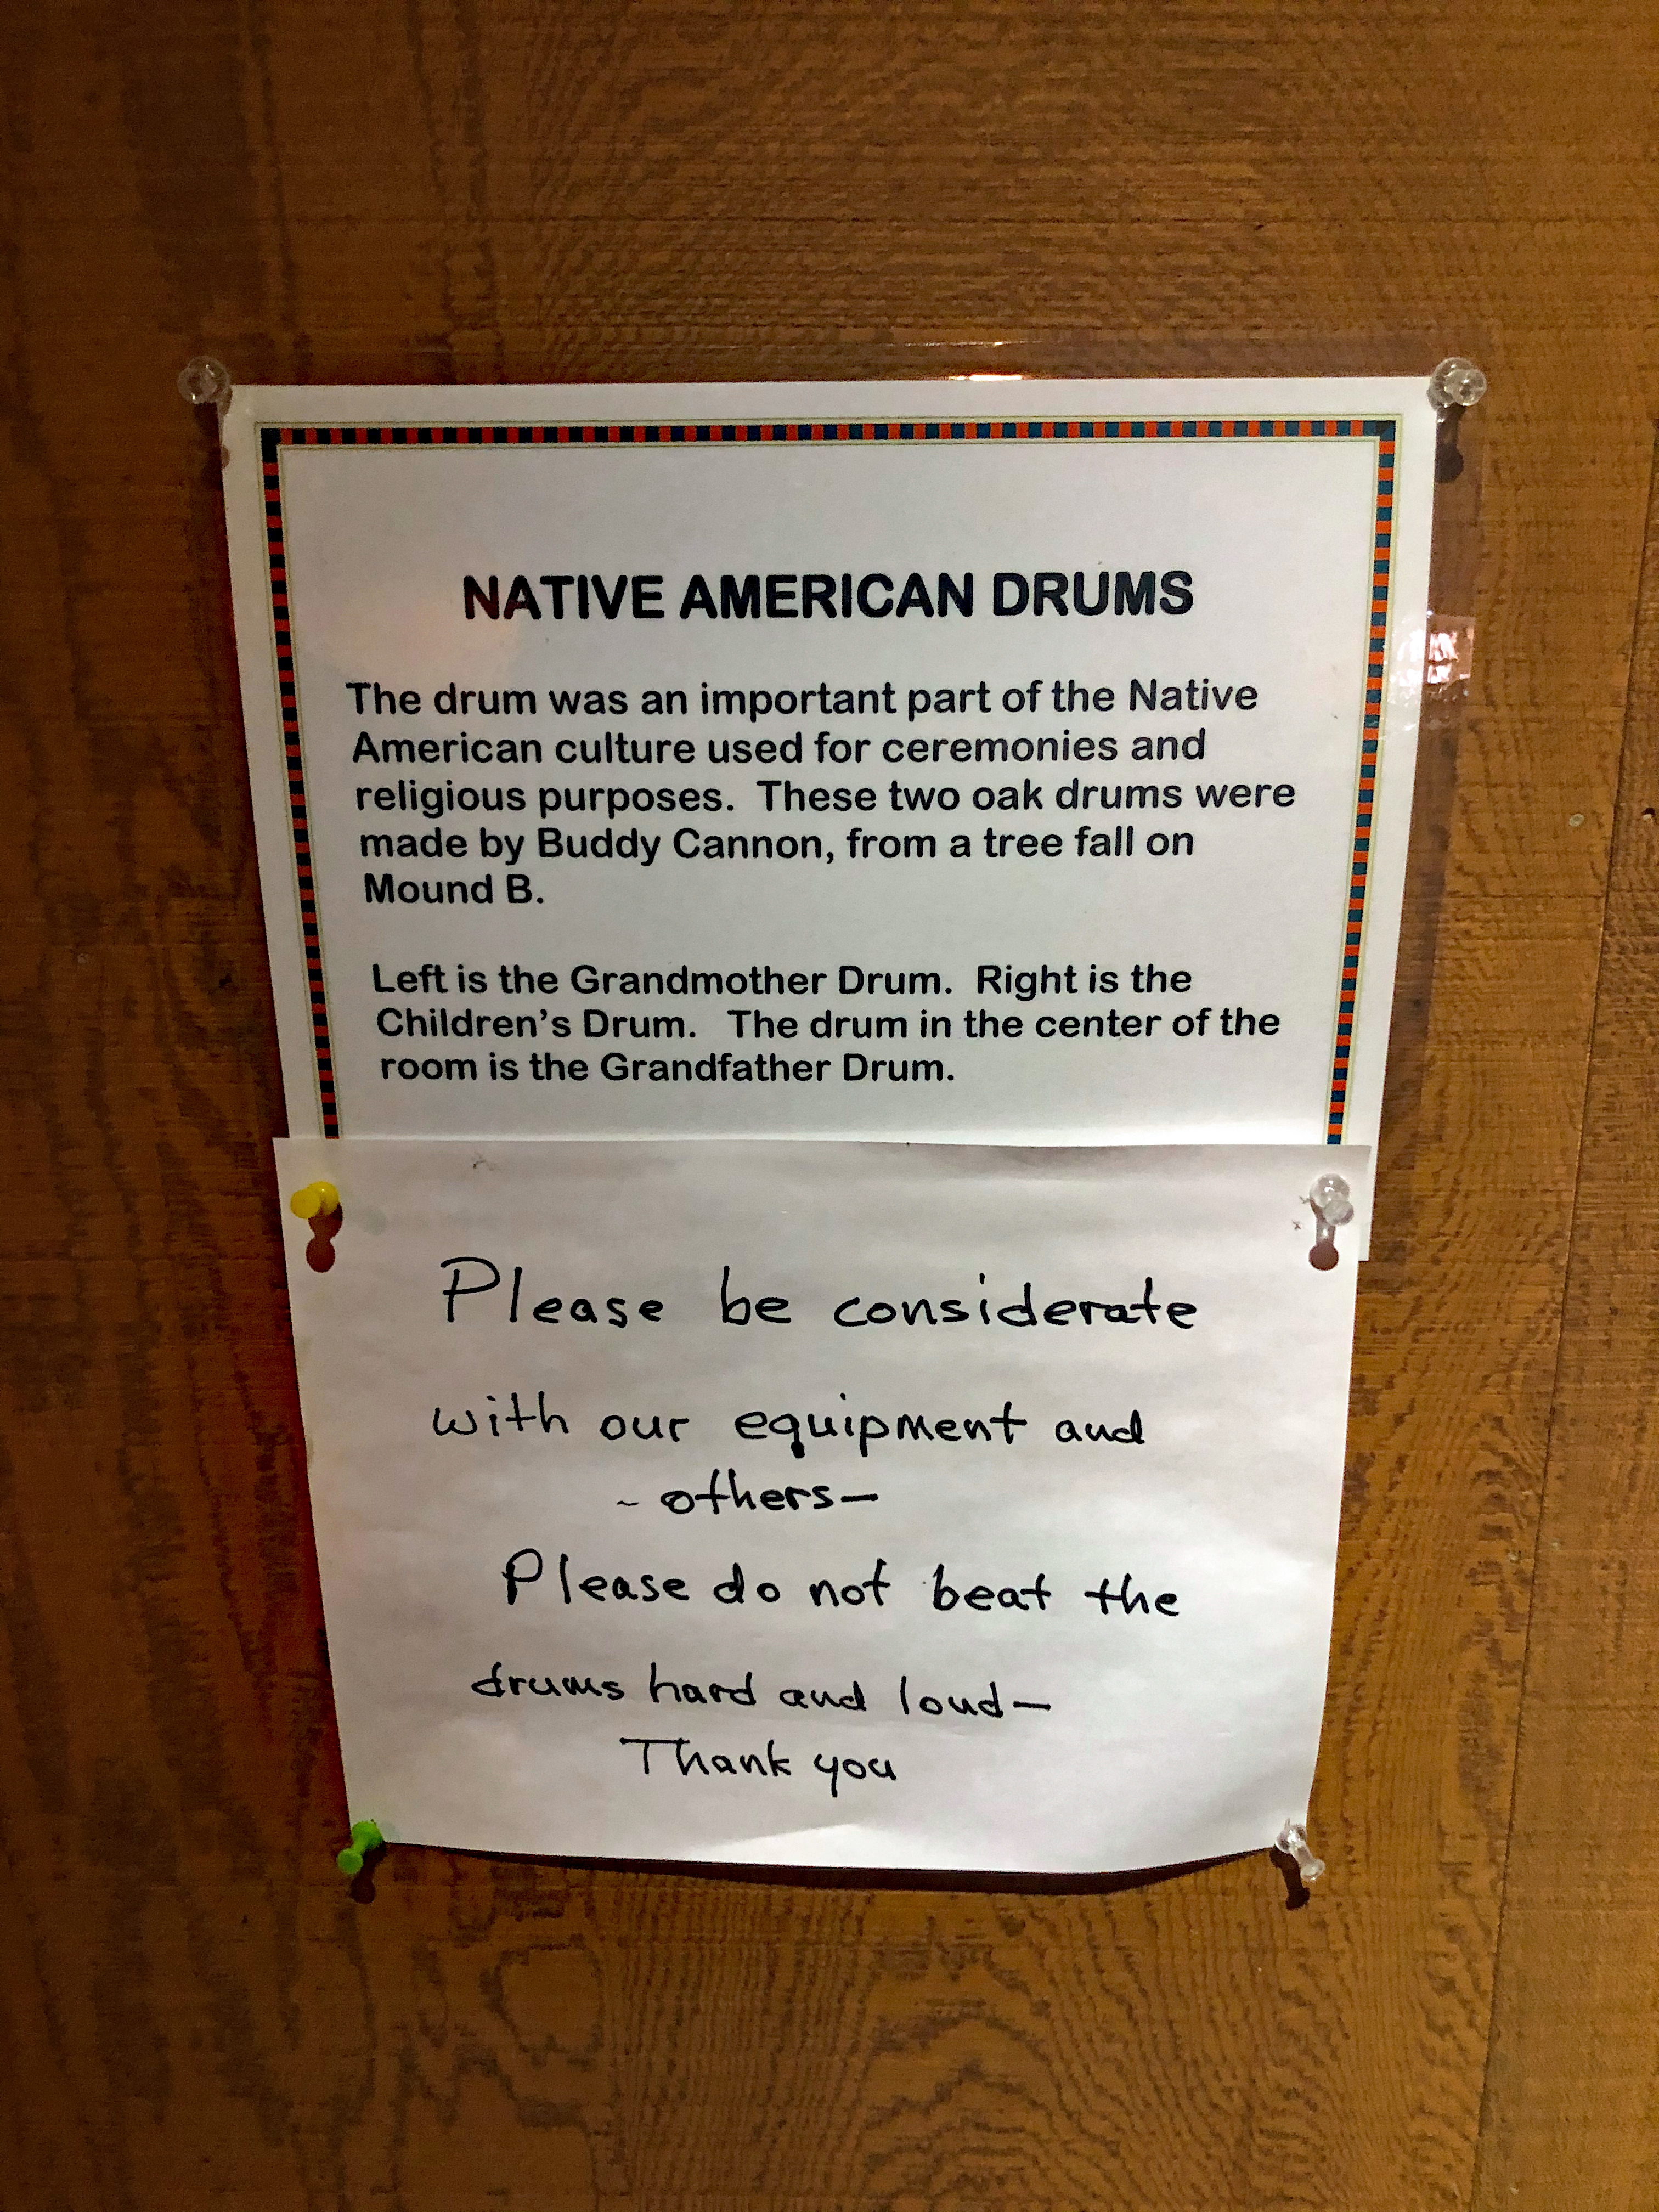 NATIVE AMERICAN DRUMS
The drum was an important part of the Native
American culture used for ceremonies and
religious purposes.  These two oak drums were
made by Buddy Cannon, from a tree fall on
Mound B.
Left is the Grandmother Drum.  Right is the
Children's Drum.   The drum in the center of the
room is the Grandfather Drum.
Please be considerate
with our equipment and
~ others—
Please do not beat the
drums hard and loud—
Thank you